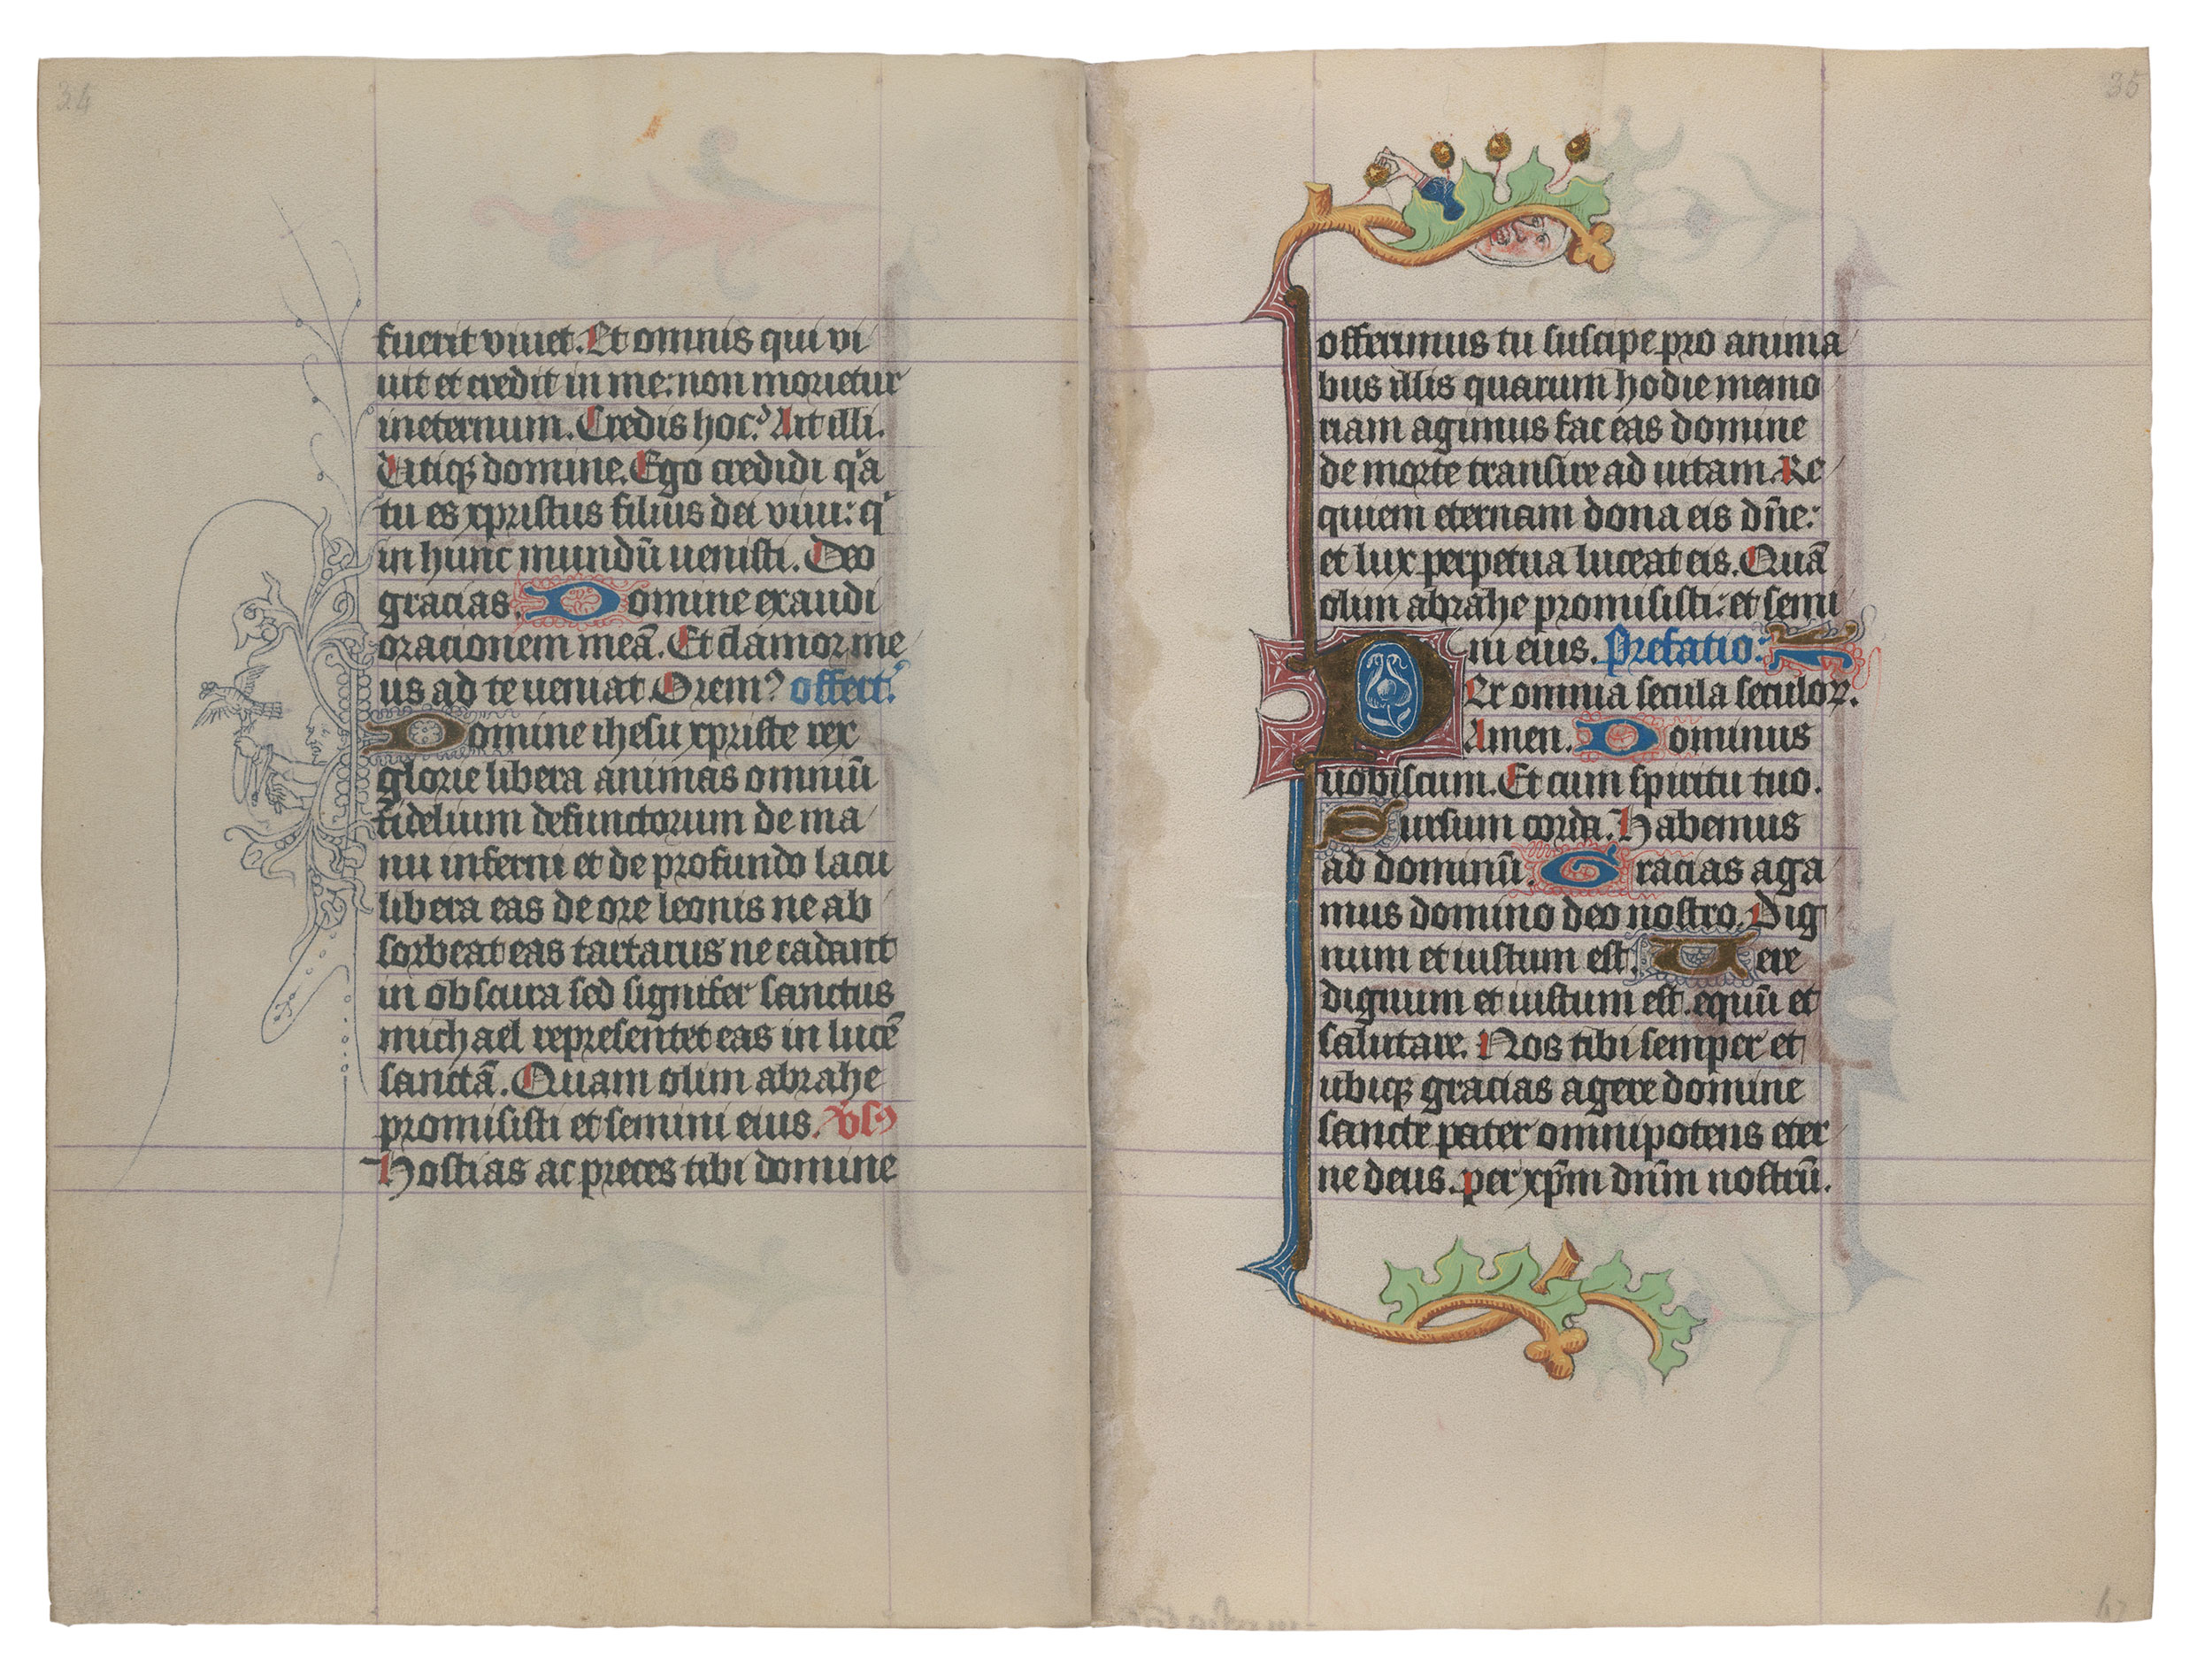 34
fuerit viuet. Et omnis qui vi
uit et credit in me: non morietur
ineternum. Credis hoc? Ait illi.
Utiqȝ domine. Ego credidi qͥa
tu es xpristus filius dei viui: qͥ
in hunc mundū uenisti. Deo
gracias. Domine exaudi
orationem meā. Et clamor me
us ad te ueniat Orem⁹ offert᷑.
Domine ihesu xpriste rex
glorie libera animas omniū
fidelium defunctorum de ma
nu inferni et de profundo lacu
libera eas de ore leonis ne ab
sorbeat eas tartarus ne cadant
in obscura sed signifer sanctus
michael representet eas in lucē
sanctā. Quam olim abrahe
promisisti et semini eius. vs⁹
Hostias ac preces tibi domine
35
offerimus tu suscipe pro anima
bus illis quarum hodie memo
riam agimus fac eas domine
de morte transire ad uitam. Re
quiem eternam dona eis dn̄e:
et lux perpetua luceat eis. Quā
olim abrahe promisisti: et semi
ni eius. Prefatio:
Per omnia secula seculoꝝ.
Amen. Dominus
uobiscum. Et cum spiritu tuo.
Sursum corda. Habemus
ad dominū. Gracias aga
mus domino deo nostro. Dig
num et iustum est. Vere
dignum et iustum est. equū et
salutare. Nos tibi semper et
ubiqȝ gracias agere domine
sancte pater omnipotens eter
ne deus. per xp̄m dn̄m nostrū.